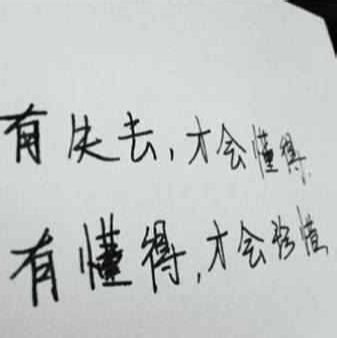 有失去,才会懂得.
有懂得,才会珍惜.